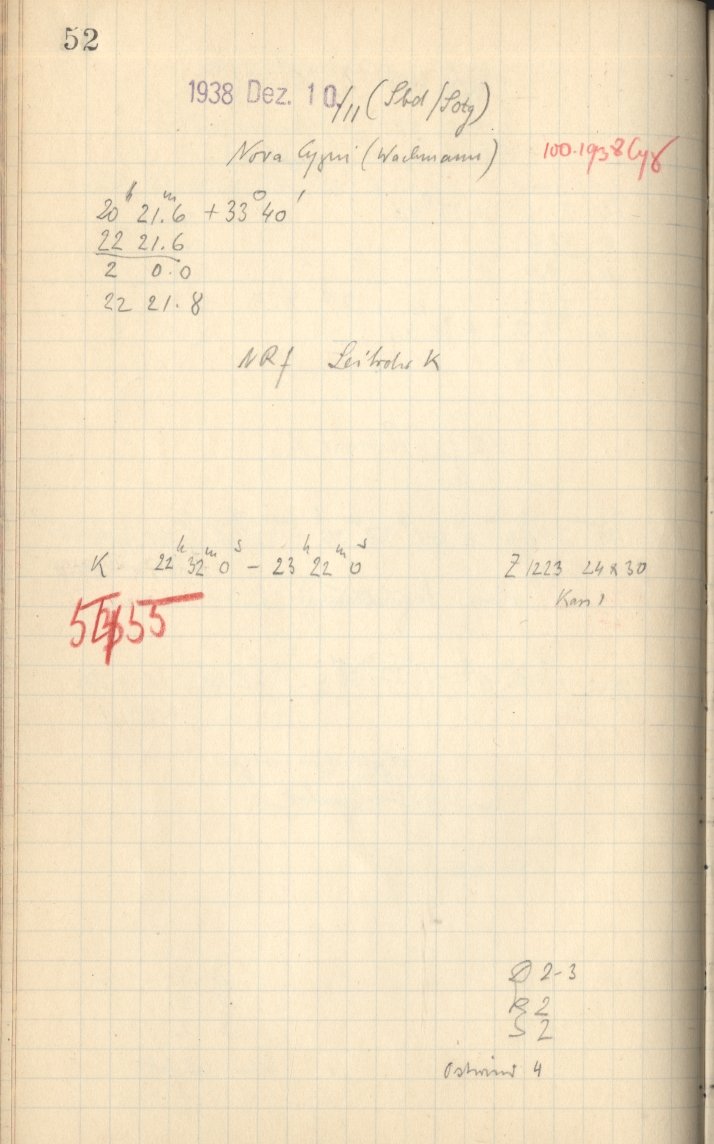 52
1938 Dez. 10./11 (Sbd/Sotg)
Nova Cygni (Wachmann) 100.1938 Cyg
20ʰ 21.ᵐ6 +33° 40'
22 21.6
2 0.0
22 21.8
NRf Leitrohr K
K 22ʰ 32ᵐ 0ˢ – 23ʰ 22ᵐ 0ˢ Z 1223 24x30
Kass 1
55
D 2-3
R 2
S 2
Ostwind 4